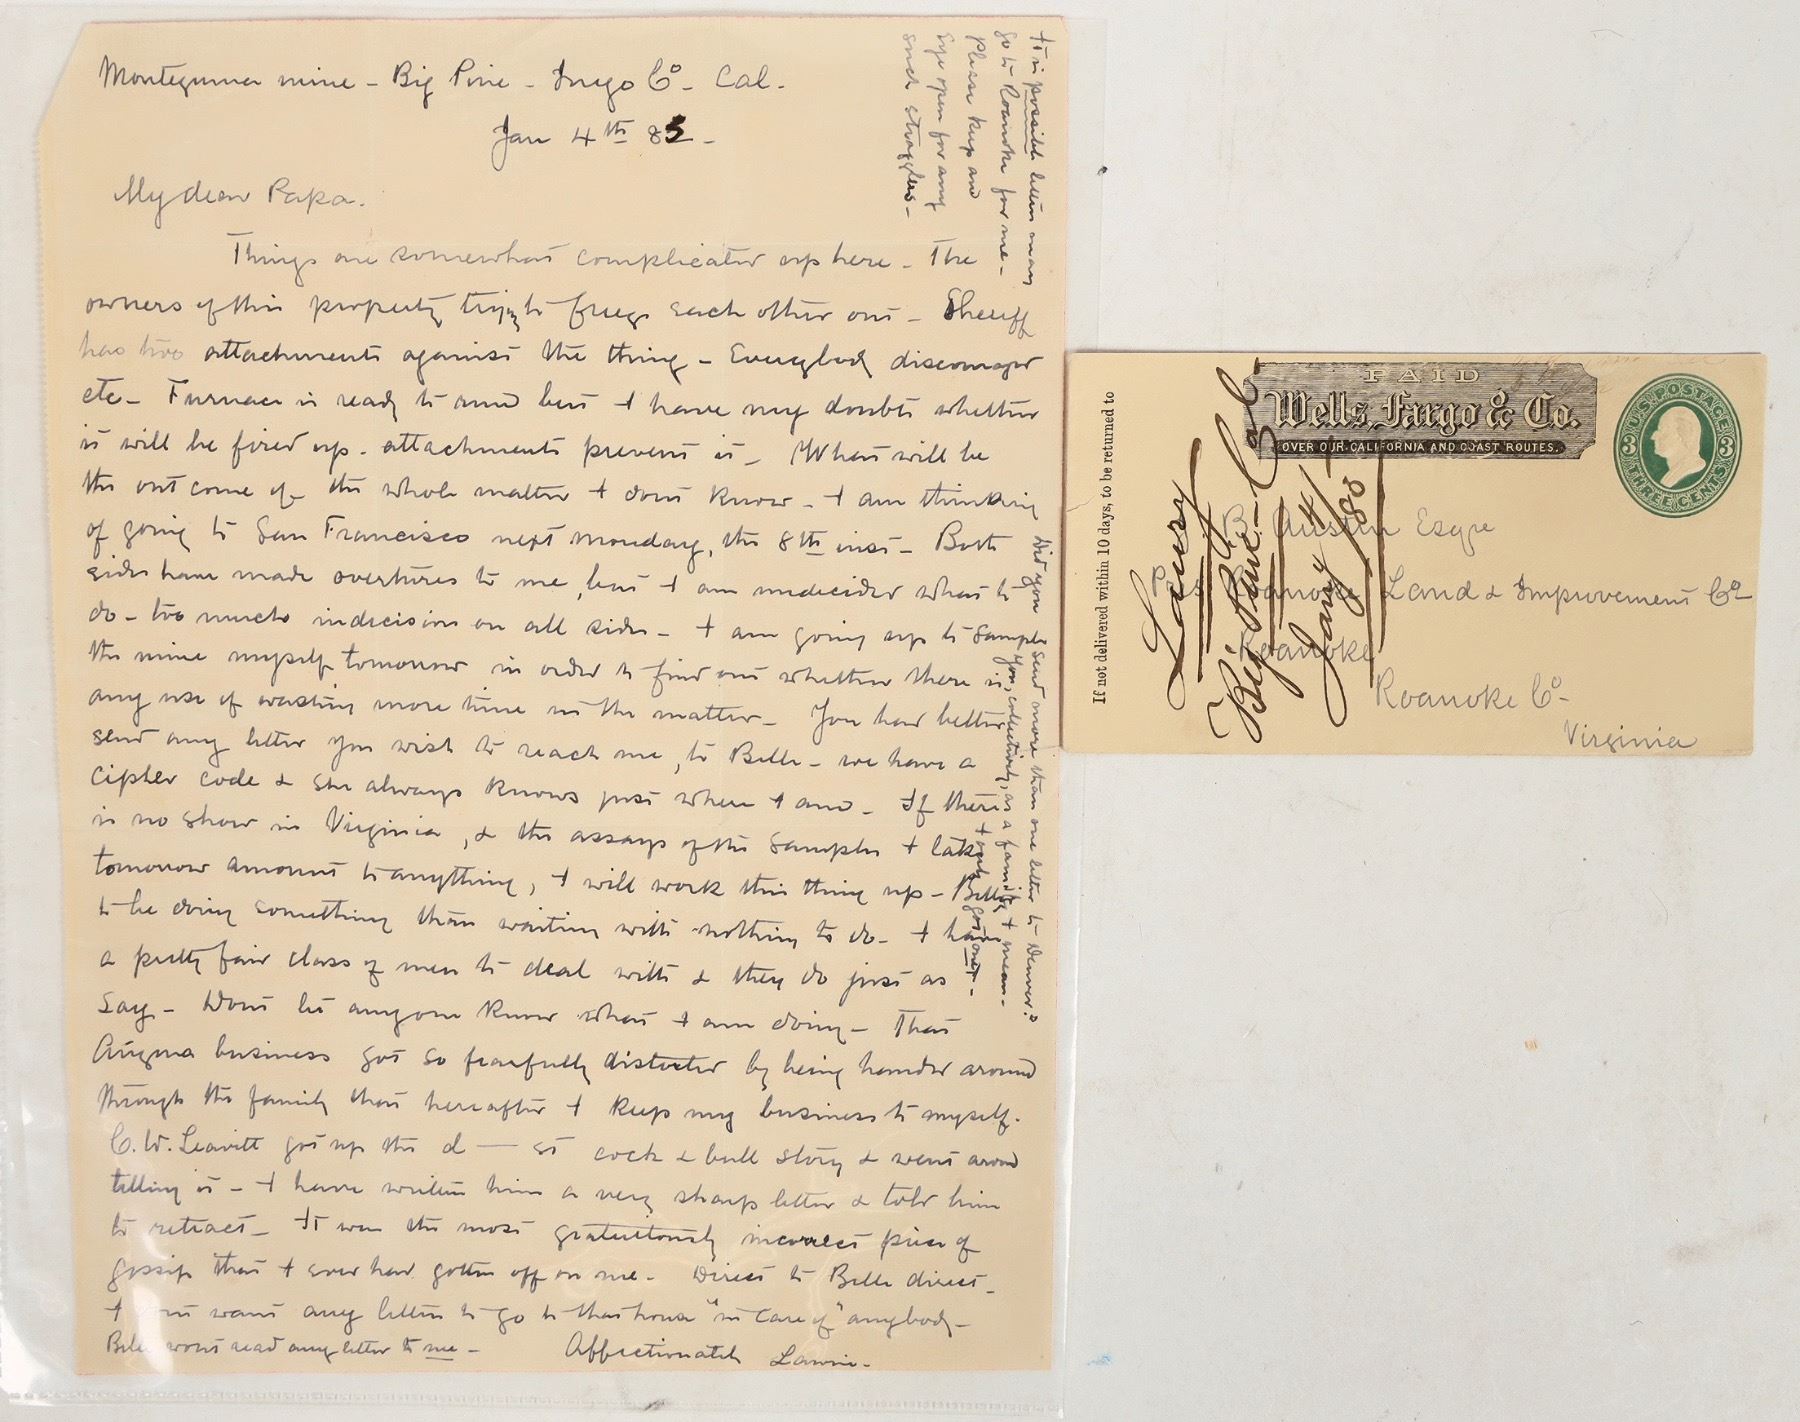 Montezuma mine - Big Pine - Inyo Co - Cal.
Jan 4th 83 -
My dear Papa.
Things are somewhat complicated up here - The
owners of this property trying to freeze each other out - Sheriff
has two attachments against the thing - Everybody discouraged
etc - Furnace is ready to but I have my doubts whether
it will be fired up - attachments prevent it - What will be
the out come of the whole matter I dont know - I am thinking
of going to San Francisco next Monday, the 8th inst - Both
sides have made overtures to me, but I am undecided what to
do - too much indecision on all sides - I am going up to sample
the mine myself tomorrow in order to find out whether there is
any use of wasting more time in the matter - You had better
send any letter you wish to reach me, to Belle - we have a
cipher code & she always knows just where I am - If there
is no show in Virginia, & the assays of the samples I take
tomorrow amount to anything, I will work this thing up - Better
to be doing something than waiting with nothing to do - I have
a pretty fair class of men to deal with & they do just as I
say - Dont let anyone know what I am doing - That
Arizona business got so fearfully distorted by being handed around
through the family that hereafter I keep my business to myself.
C. W. Leavitt got up the d—st cock & bull story & went around
telling it - I have written him a very sharp letter & told him
to retract - It was the most gratuitously incorrect piece of
gossip that I ever had gotten off on me - Direct to Belle direct -
I dont want any letters to go to that house "in care of" anybody -
Belle wont read any letter to me -
Affectionately Lawrie -
It is possible letters may
go to Roanoke for me -
Please keep an
eye open for any
such stragglers -
Did you send more than one letter to Denver?
You, collectively, as a family I mean -
I only got one -
If not delivered within 10 days, to be returned to
PAID
Wells, Fargo & Co.
OVER OUR CALIFORNIA AND COAST ROUTES.
U.S. POSTAGE
3 3
THREE CENTS
Big Pine - Cal
Jany 4th /83
B. Austin Esqre
Pres Roanoke Land & Improvement Co
Roanoke
Roanoke Co -
Virginia